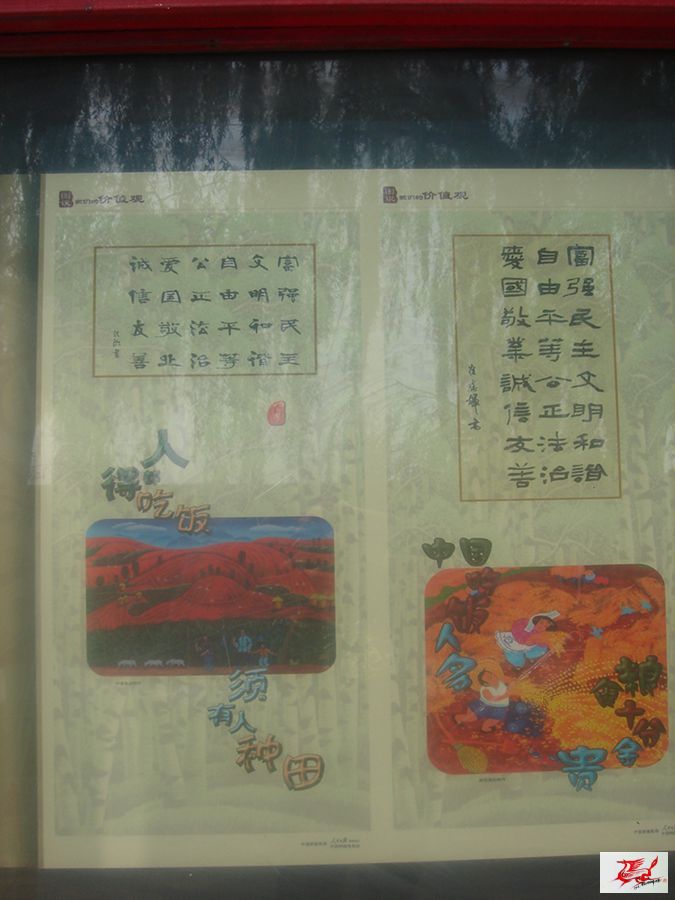 图说 我们的价值观
富强民主
文明和谐
自由平等
公正法治
爱国敬业
诚信友善
人
得
吃饭
须
有人
种田
图说 我们的价值观
富强民主文明和諧
自由平等公正法治
愛國敬業誠信友善
中国
吃饭
人多
粮食
十分
金贵